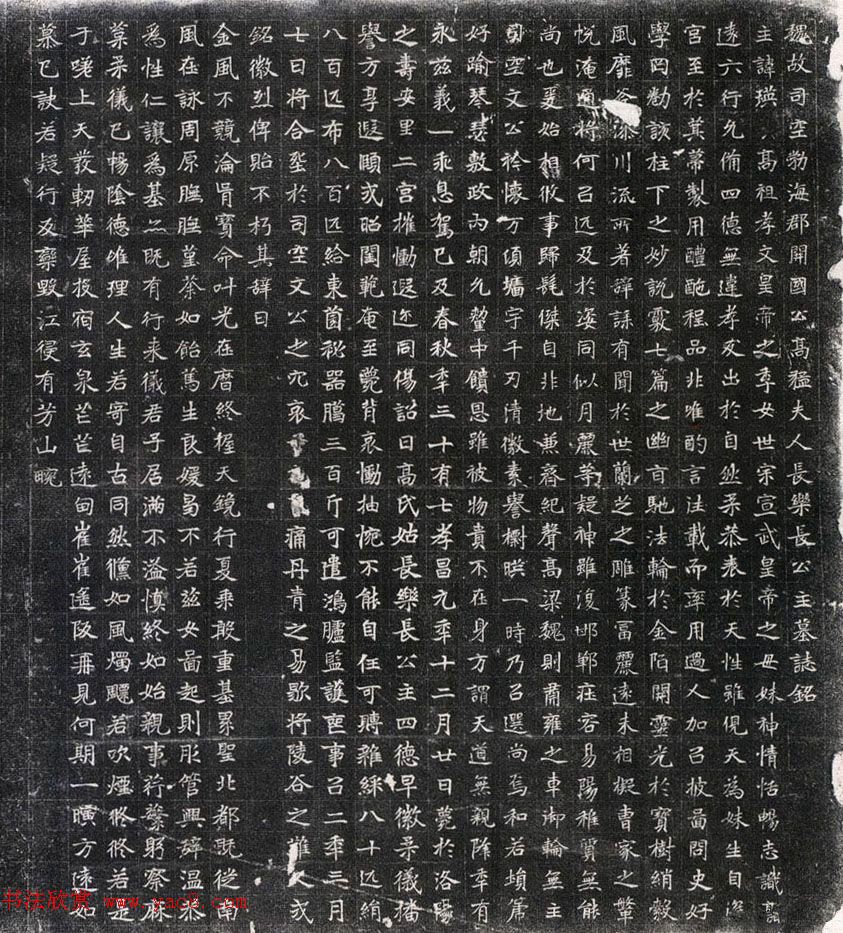 魏故司空勃海郡開國公高猛夫人長樂長公主墓誌銘
主諱瑛高祖孝文皇帝之季女世宗宣武皇帝之母妹神情恬暢志識高
遠六行允備四德無違孝友出於自然柔恭表於天性雖俔天為妹生自深
宮至於箕帚製用醴酏程品非唯酌言往載而率用過人加以披圖問史好
學罔勌該柱下之妙說覈七篇之幽旨馳法輪於金陌開靈光於寶樹綃縠
風靡 川流所著辭誄有聞於世蘭芝之雕篆富麗遠未相擬曹家之
悅淹通將何以近及於姿同似月麗等疑神雖復邯鄲庄容易陽稚質無能
尚也爰始相攸事歸髦傑自非地兼齊紀聲高梁魏則肅雍之車御輪無主
司空文公衿懷万頃墻宇千刃清徽素譽 一時乃以選尚焉和若塤篪
好踰琴瑟敷政內朝允釐中饋恩雖被物貴不在身方謂天道無親降秊有
永茲義一乖息駕已及春秋秊三十有七孝昌元秊十二月廿日薨於洛陽
之壽安里二宮摧慟遐迩同傷詔曰高氏姑長樂長公主四德早徽柔儀播
譽方享遐頤式昭閨範奄至薨背哀慟抽惋不能自任可賻雜綵八十匹絹
八百匹布八百匹給東園祕器臈三百斤可遣鴻臚監護喪事以二秊三月
七日將合塟於司空文公之穴哀 痛丹青之易歇將陵谷之難久式
銘徽烈俾貽不朽其辭曰
金風不競淪胥寶命叶光在曆終握天鏡行夏乘殷重基累聖北都既從南
風在詠周原膴膴菫荼如飴篤生良媛曷不若茲女圖起則彤管興辭溫恭
為性仁讓為基亦既有行来儀君子居滿不溢慎終如始親事荇蘩躬察麻
枲柔儀已暢陰德維理人生若寄自古同然儵如風燭飃若吹煙悠悠若是
于嗟上天發軔華屋投宿玄泉芒芒遠甸崔崔遥阪再見何期一曠方遠如
慕已訣若疑行反蘂毀江侵有芳山畹
书法欣赏 www.yac8.com